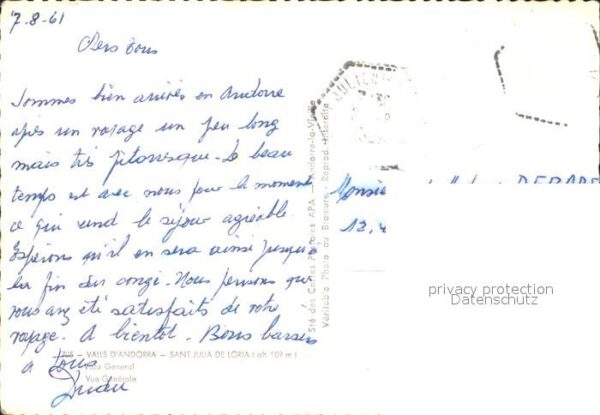 7-8-61
Chers tous
Sommes bien arrivés en Andorre
après un voyage un peu long
mais très pittoresque. Le beau
temps est avec nous pour le moment
ce qui rend le séjour agréable.
Espérons qu'il en sera ainsi jusqu'à
la fin du congé. Nous pensons que
vous avez été satisfaits de votre
voyage. A bientôt. Bons baisers
à tous
VALLS D'ANDORRA - SANT JULIA DE LORIA ( alt. 909 m )
Vista General
Vue Générale
Sté des Cartes Postales APA - Andorre-la-Vieille
Véritable Photo au Bromure - Reprod. Interdite
Monsie
privacy protection
Datenschutz